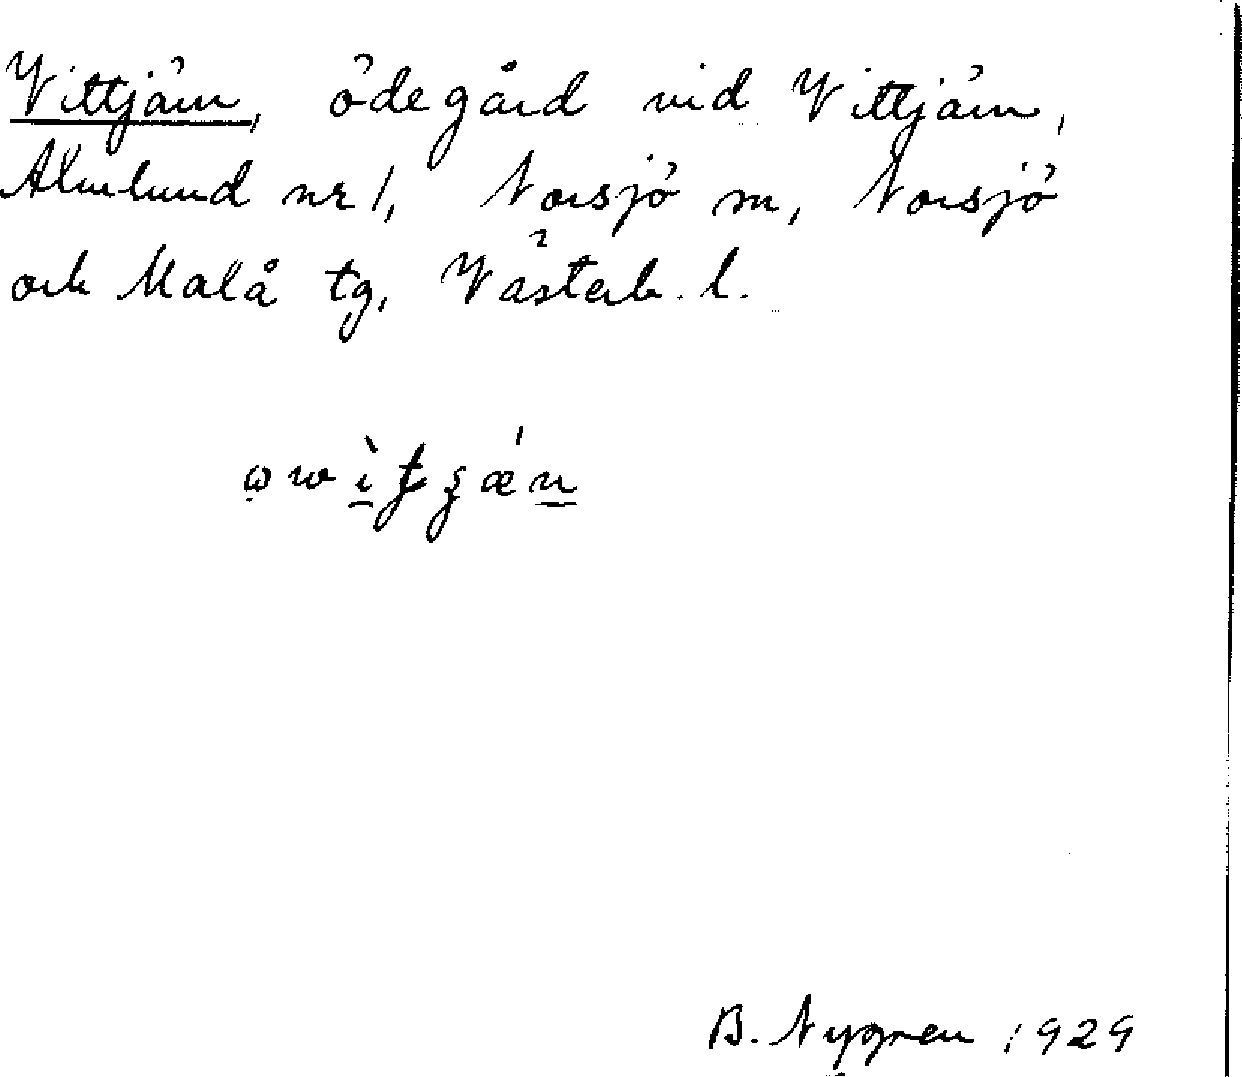 Vittjärn, ödegård vid Vittjärn,
Almlund nr 1, Norsjö sn, Norsjö
och Malå tg, Västerb. l.
B. Nygren 1929